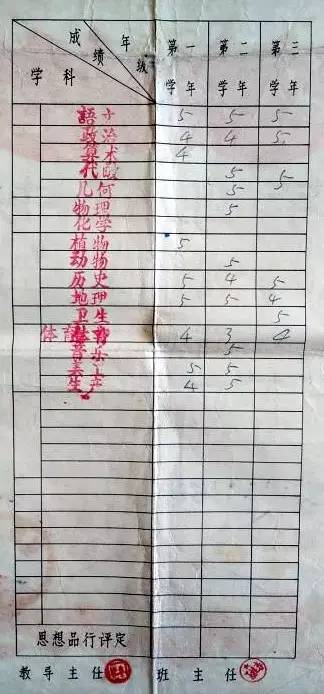 成绩 年级 学科 第一学年 第二学年 第三学年
語文 5 5 5
政治 4 4 5
算术 4
代数 5 5
几何 5
物理 5
化学
植物 5
动物 5
历史 5 4 5
地理 5 5 4
卫生 5
体育 4 3
音乐 5
美 5 5
生产 4 5
思想品行评定
教导主任 班主任